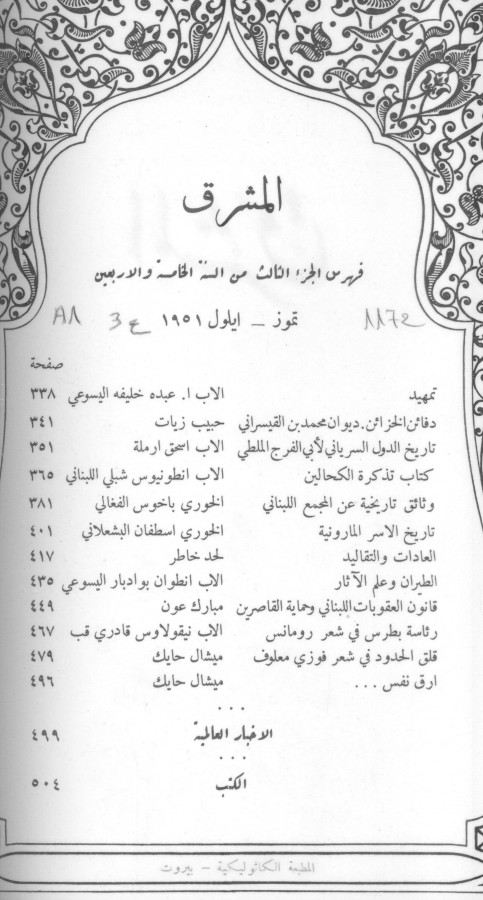 المشرق
فهرس الجزء الثالث من السنة الخامسة والاربعين
تموز – ايلول ١٩٥١
A1 3ع 1172
صفحة
تمهيد الاب ا. عبده خليفه اليسوعي ٣٣٨
دفائن الخزائن. ديوان محمد بن القيسراني حبيب زيات ٣٤١
تاريخ الدول السرياني لأبي الفرج الملطي الاب اسحق ارملة ٣٥١
كتاب تذكرة الكحالين الاب انطونيوس شبلي اللبناني ٣٦٥
وثائق تاريخية عن المجمع اللبناني الخوري باخوس الفغالي ٣٨١
تاريخ الاسر المارونية الخوري اسطفان البشعلاني ٤٠١
العادات والتقاليد لحد خاطر ٤١٧
الطيران وعلم الآثار الاب انطوان بوادبار اليسوعي ٤٣٥
قانون العقوبات اللبناني وحماية القاصرين مبارك عون ٤٤٩
رئاسة بطرس في شعر رومانس الاب نيقولاوس قادري قب ٤٦٧
قلق الحدود في شعر فوزي معلوف ميشال حايك ٤٧٩
ارق نفس ... ميشال حايك ٤٩٦
...
الاخبار العالمية ٤٩٩
...
الكتب ٥٠٤
المطبعة الكاثوليكية – بيروت